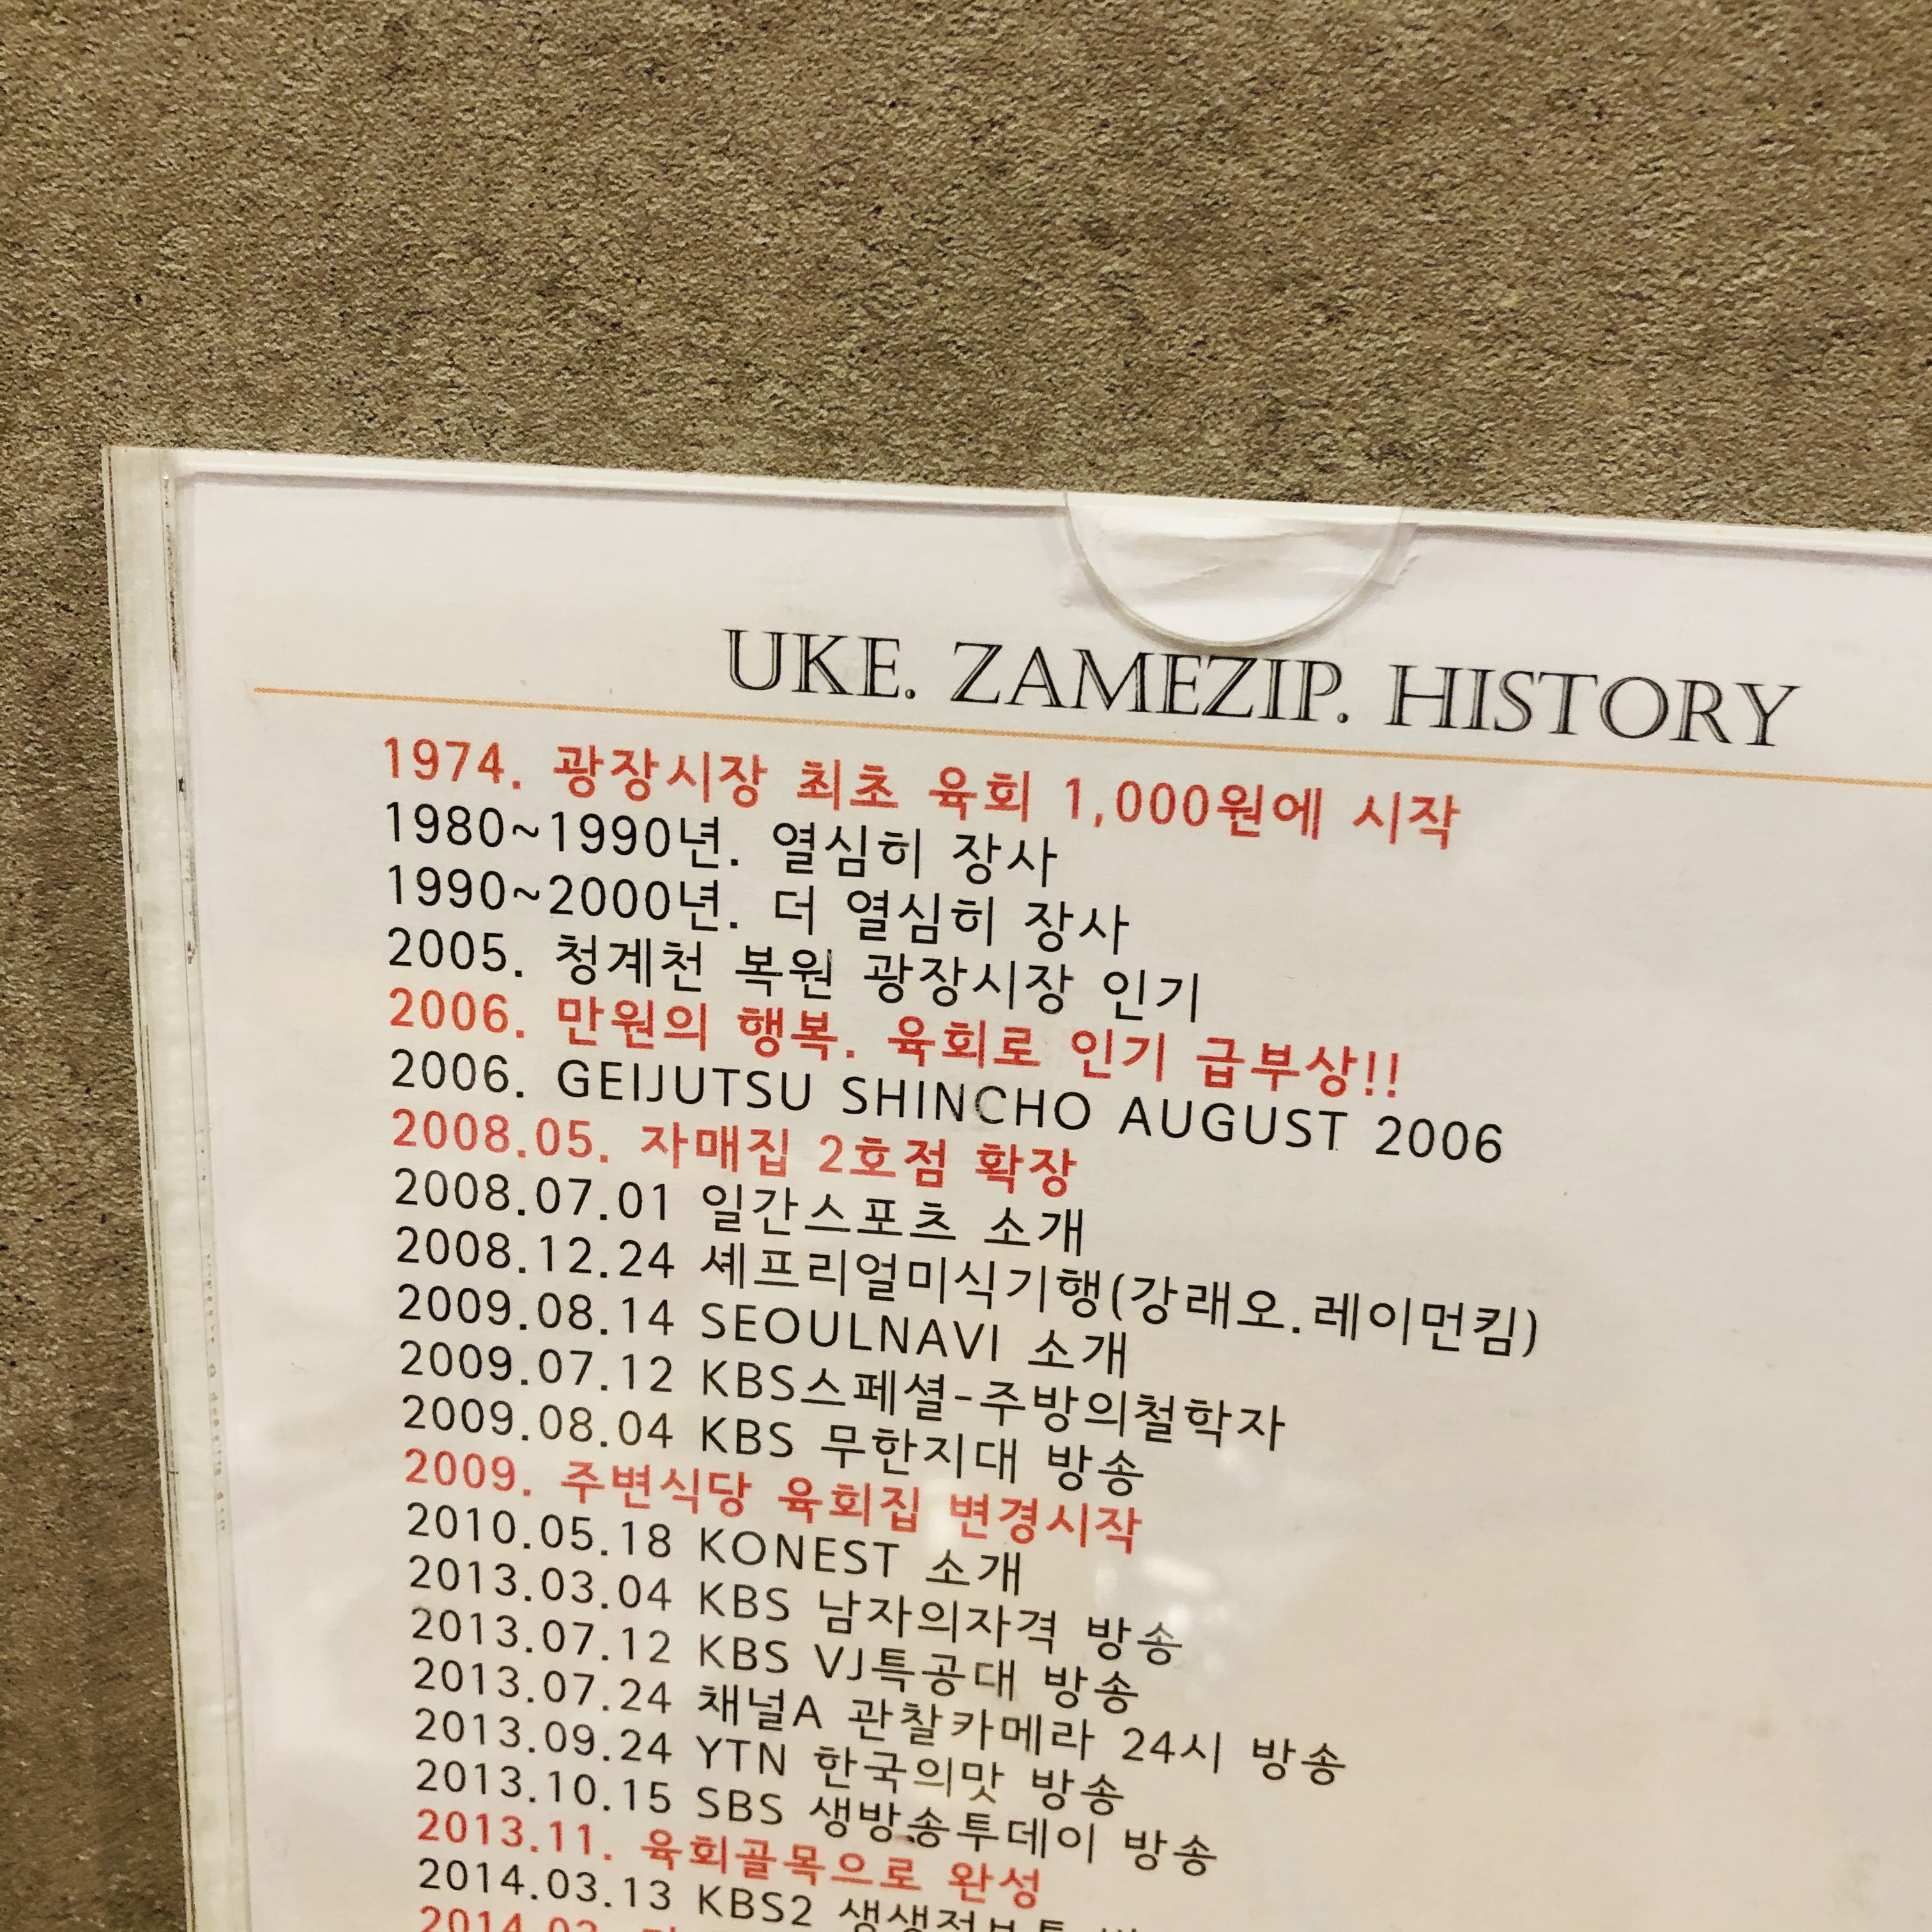 UKE. ZAMEZIP. HISTORY
1974. 광장시장 최초 육회 1,000원에 시작
1980~1990년. 열심히 장사
1990~2000년. 더 열심히 장사
2005. 청계천 복원 광장시장 인기
2006. 만원의 행복. 육회로 인기 급부상!!
2006. GEIJUTSU SHINCHO AUGUST 2006
2008.05. 자매집 2호점 확장
2008.07.01 일간스포츠 소개
2008.12.24 셰프리얼미식기행(강래오.레이먼킴)
2009.08.14 SEOULNAVI 소개
2009.07.12 KBS스페셜-주방의철학자
2009.08.04 KBS 무한지대 방송
2009. 주변식당 육회집 변경시작
2010.05.18 KONEST 소개
2013.03.04 KBS 남자의자격 방송
2013.07.12 KBS VJ특공대 방송
2013.07.24 채널A 관찰카메라 24시 방송
2013.09.24 YTN 한국의맛 방송
2013.10.15 SBS 생방송투데이 방송
2013.11. 육회골목으로 완성
2014.03.13 KBS2